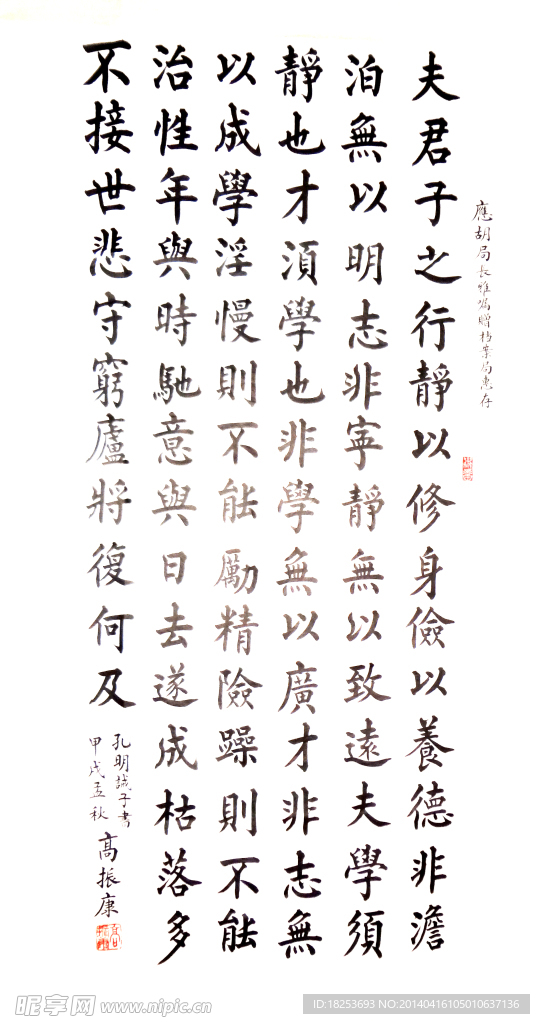 應胡局长雅贈档案局惠存
夫君子之行靜以修身儉以養德非澹
泊無以明志非寧靜無以致遠夫學須
靜也才須學也非學無以廣才非志無
以成學淫慢則不能勵精險躁則不能
治性年與時馳意與日去遂成枯落多
不接世悲守窮廬將復何及
孔明誡子書
甲戌孟秋
高振康
昵享网 www.nipic.cn
ID:18253693 NO:20140416105010637136